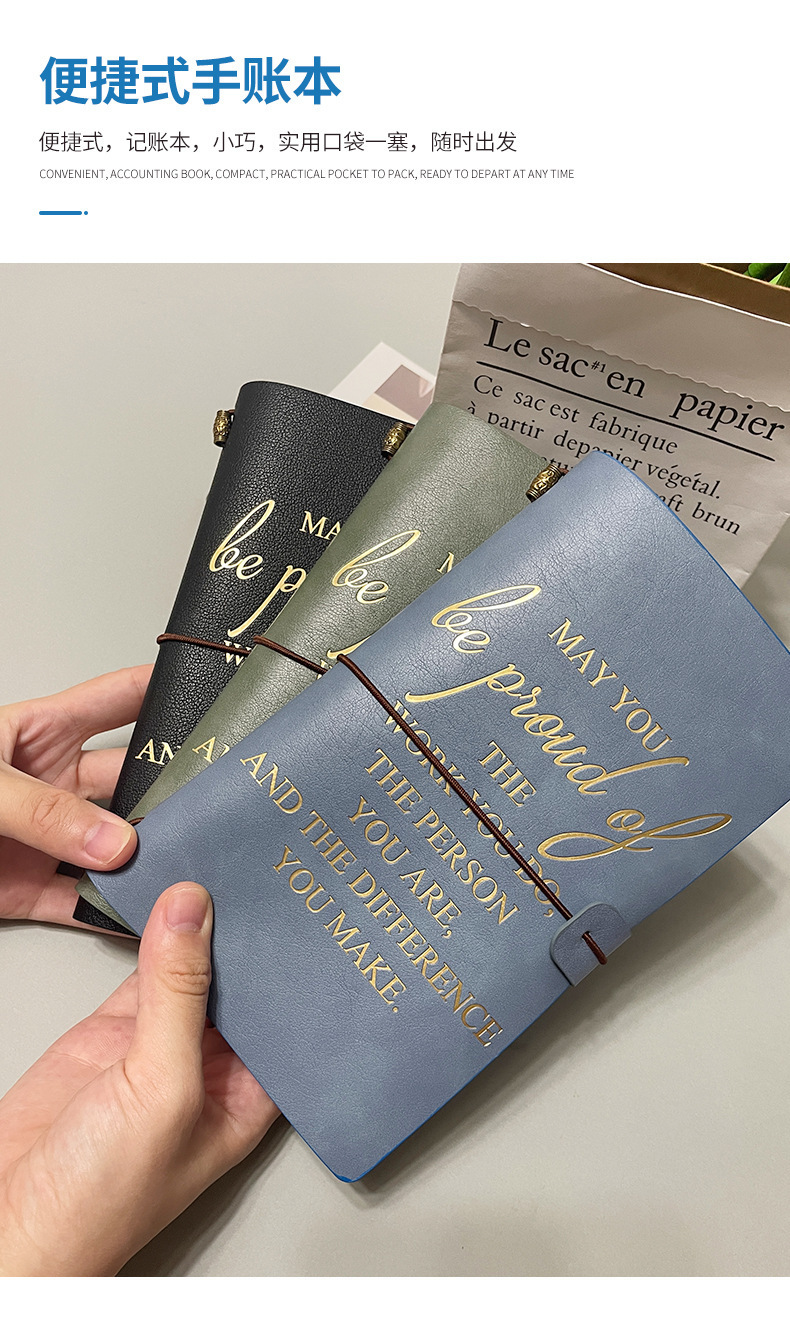 便捷式手账本
便捷式，记账本，小巧，实用口袋一塞，随时出发
CONVENIENT, ACCOUNTING BOOK, COMPACT, PRACTICAL POCKET TO PACK, READY TO DEPART AT ANY TIME
Le sac #1 en papier
Ce sac est fabrique
à partir depapier végétal.
aft brun
MA
be p
W
AN
be
MAY YOU
be proud of
THE
WORK YOU DO,
THE PERSON
YOU ARE,
AND THE DIFFERENCE
YOU MAKE.